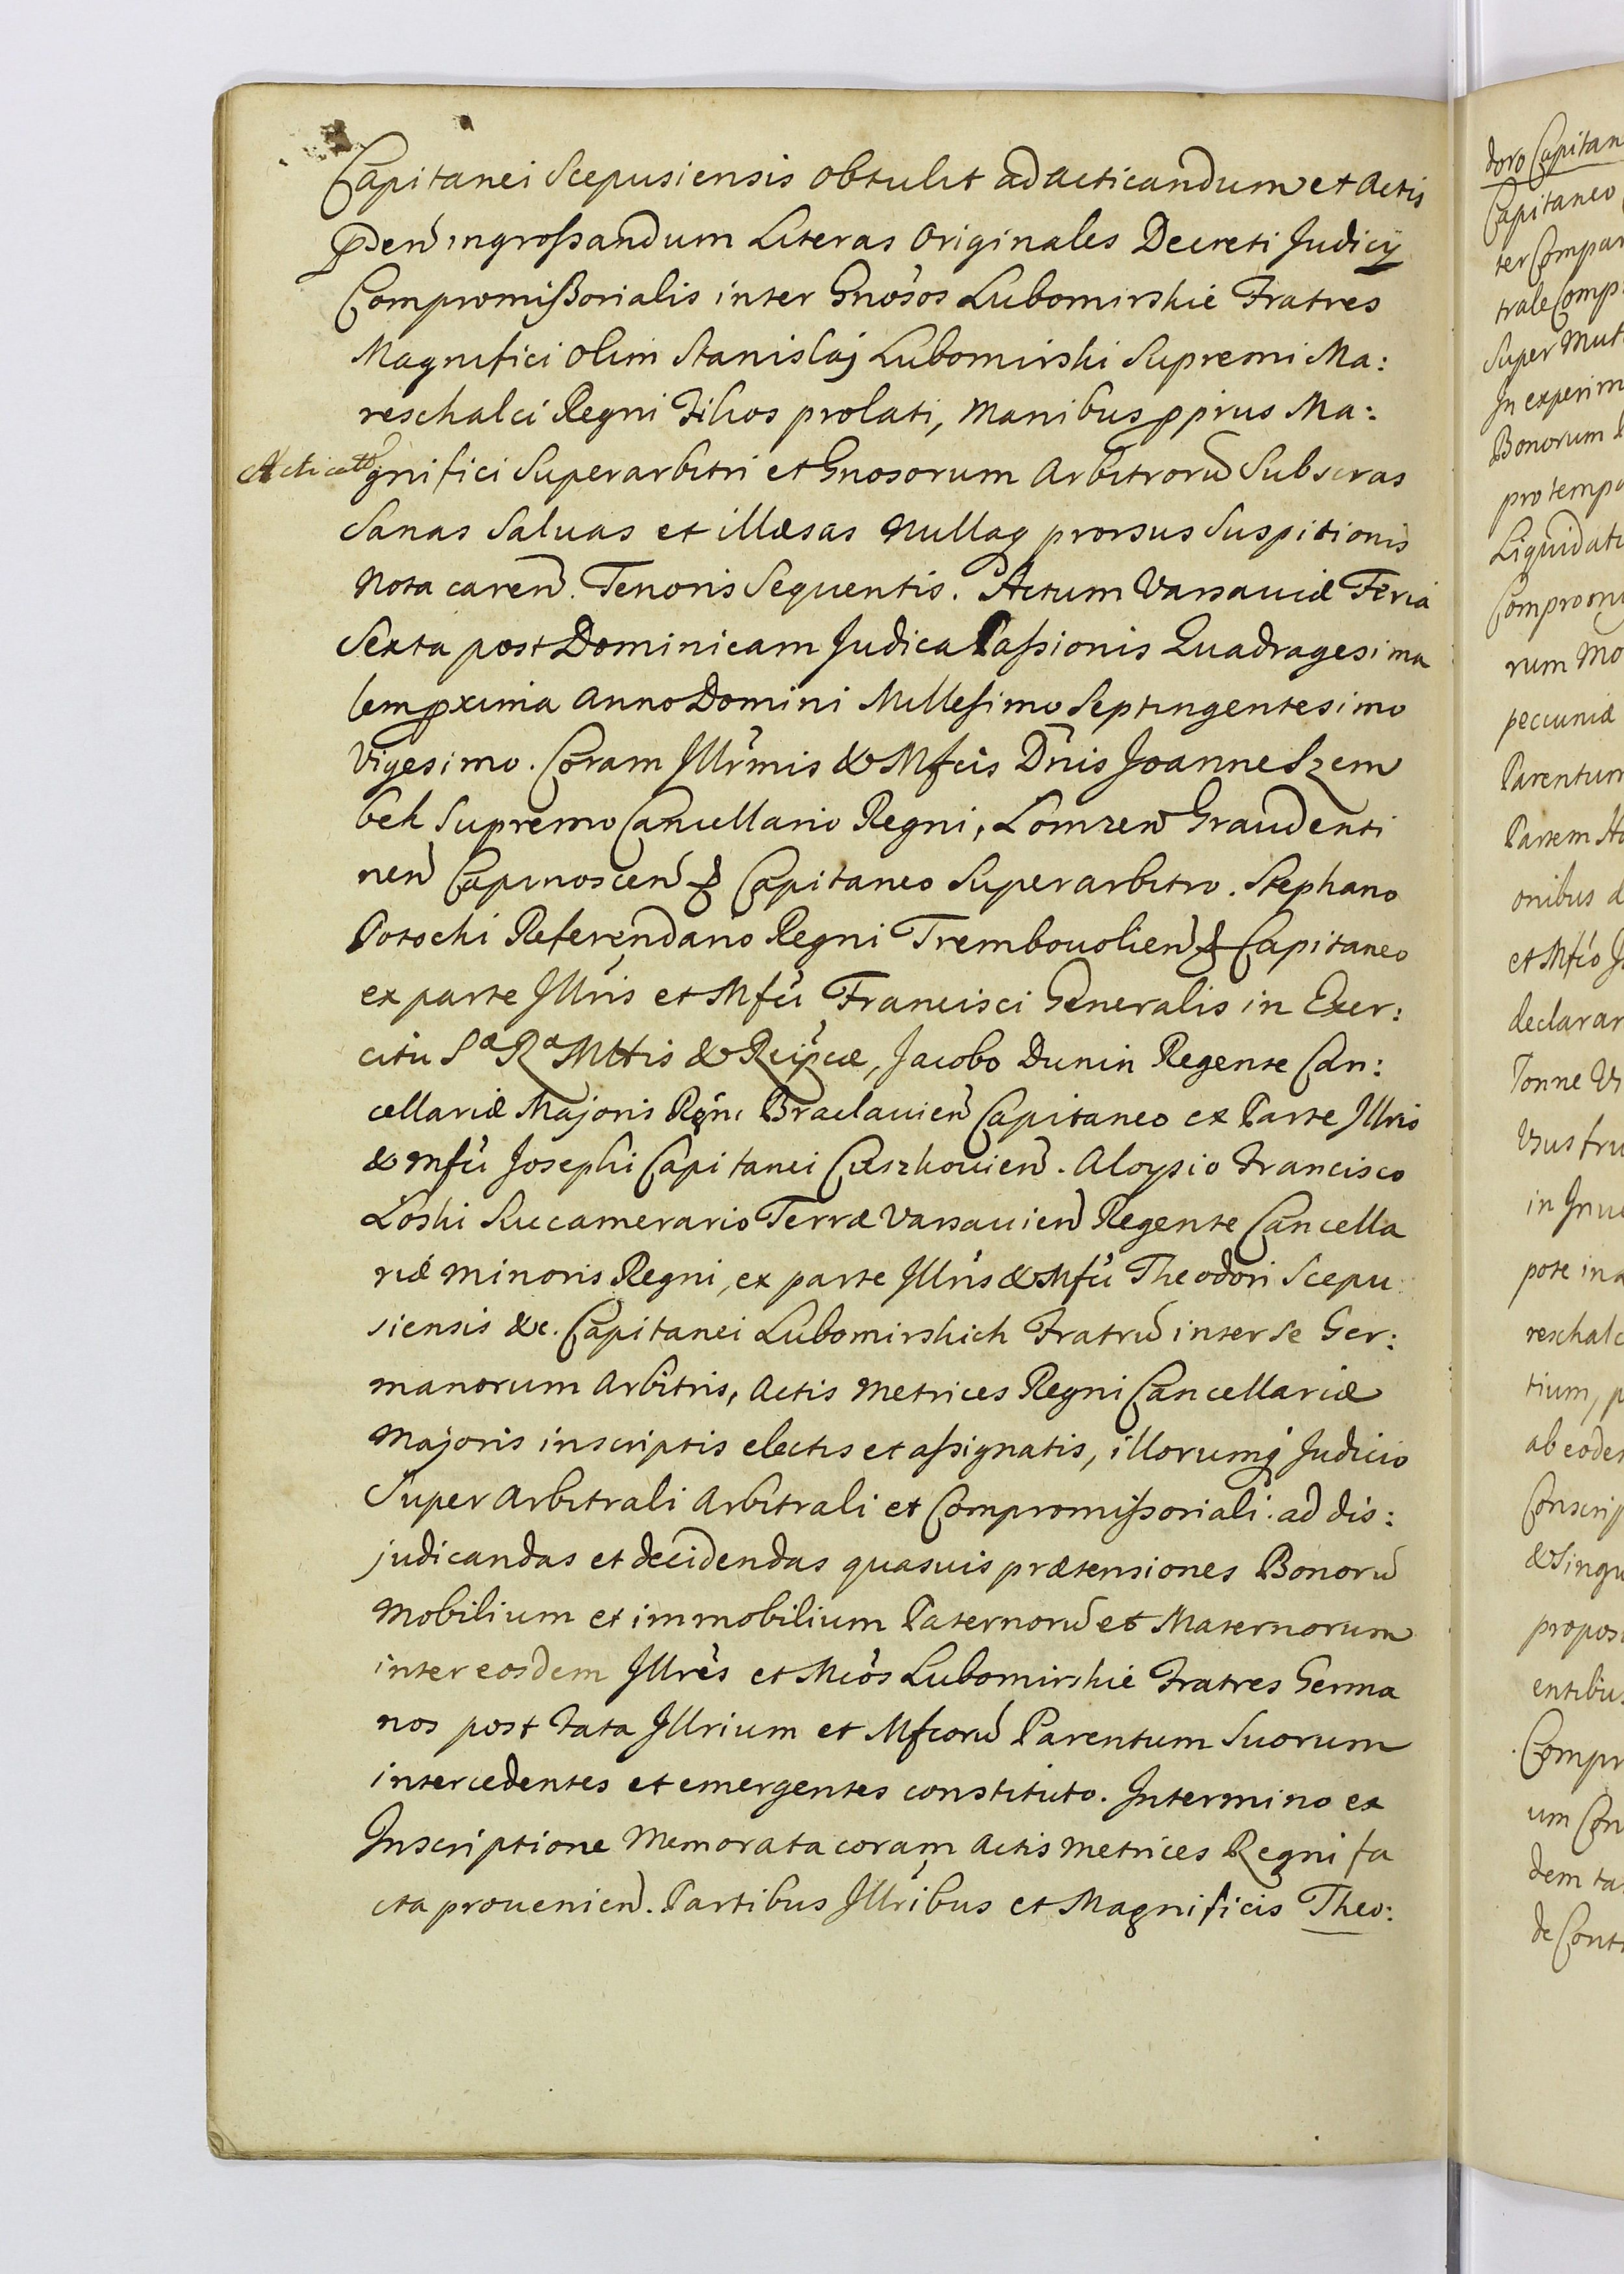 Capitanei Scepusiensis obtulit ad acticandum et Actis
pnden ingrossandum Literas Originales Decreti Judicij
Compromissorialis inter Gnosos Lubomirskie Fratres
Magnifici olim Stanislaj Lubomirski Supremi Ma:
reschalci Regni Filios prolati, Manibus pprius Ma:
gnifici Superarbitri et Gnosorum Arbitrorū Subscras
Sanas Saluas et illæsas nullaq prorsus Suspitionis
Nota caren. Tenoris Sequentis. Actum Varsauiæ Feria
Sexta post Dominicam Judica Passionis Quadragesima
lem pxima Anno Domini Millesimo Septingentesimo
Vigesimo. Coram Illrmis & Mfcis Dnis Joanne Szem
bek Supremo Cancellario Regni, Lomzen Graudenti
nen Capinoscen & Capitaneo Superarbitro. Stephano
Potocki Referendario Regni Trembouolien & Capitaneo
ex parte Illris et Mfci Francisci Generalis in Exer:
citu Sæ Ræ Mttis & Reipcæ, Jacobo Dunin Regente Can:
cellariæ Majoris Rgni Braclauien Capitaneo ex Parte Illris
& Mfci Josephi Capitanei Caszkouien. Aloysio Francisco
Loski Succamerario Terræ Varsauien Regente Cancella
riæ minoris Regni, ex parte Illris & Mfci Theodori Scepu
siensis &c. Capitanei Lubomirskich Fratrū inter se Ger:
manorum Arbitris, Actis Metrices Regni Cancellariæ
Majoris inscriptis electis et assignatis, illorumq Judicio
Super Arbitrali Arbitrali et Compromissoriali ad dis:
judicandas et decidendas quasuis prætensiones Bonorū
Mobilium et immobilium Paternorū et Maternorum
inter eosdem Illres et Mcos Lubomirskie Fratres Germa
nos post Fata Illrium et Mfcorū Parentum Suorum
intercedentes et emergentes constituto. In termino ex
Inscriptione Memorata coram Actis Metrices Regni fa
cta prouenien. Partibus Illribus et Magnificis Theo:
doro Capitan
Capitaneo
ter Compar
trale Comp
Super Mut
In experim
Bonorum
pro tempo
Liquidati
Compromi
rum Mo
pecuniæ
Parentum
Partem
onibus d
et Mfco J
declarar
Tonne
Usus fru
in
pore in a
reschalc
tium, p
ab eodem
Conscrip
& Singu
propos
entibus
Compr
um Con
dem ta
de Cont